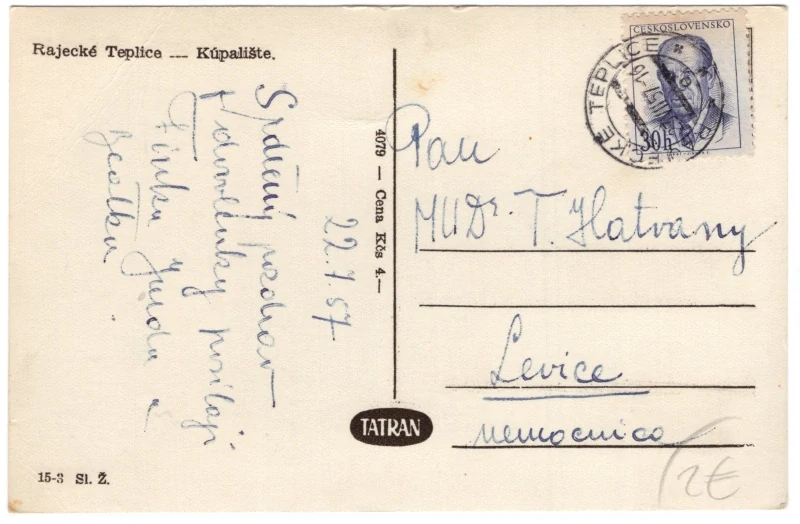 Rajecké Teplice — Kúpalište.
22.7.57
Srdečný pozdrav
z dovolenky posílají
Jurda a
4079 — Cena Kčs 4.—
TATRAN
15-3 Sl. Ž.
ČESKOSLOVENSKO
30 h
RAJECKÉ TEPLICE
Pan
MUDr. T. Hatvany
Levice
nemocnica
2€